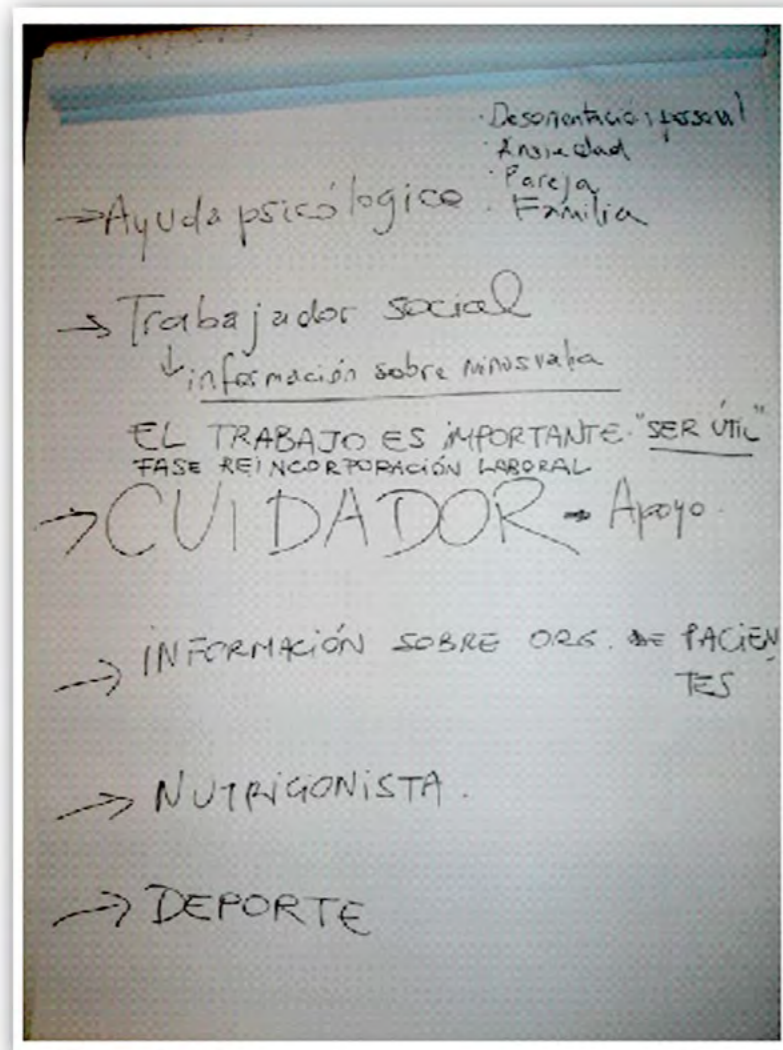 · Desorientación personal
· Ansiedad
· Pareja
· Familia
→ Ayuda psicólogico
→ Trabajador social
↓ información sobre minusvalia
EL TRABAJO ES IMPORTANTE. "SER ÚTIL"
FASE REINCORPORACIÓN LABORAL
→ CUIDADOR → Apoyo.
→ INFORMACIÓN SOBRE ORG. DE PACIEN
TES
→ NUTRICIONISTA.
→ DEPORTE